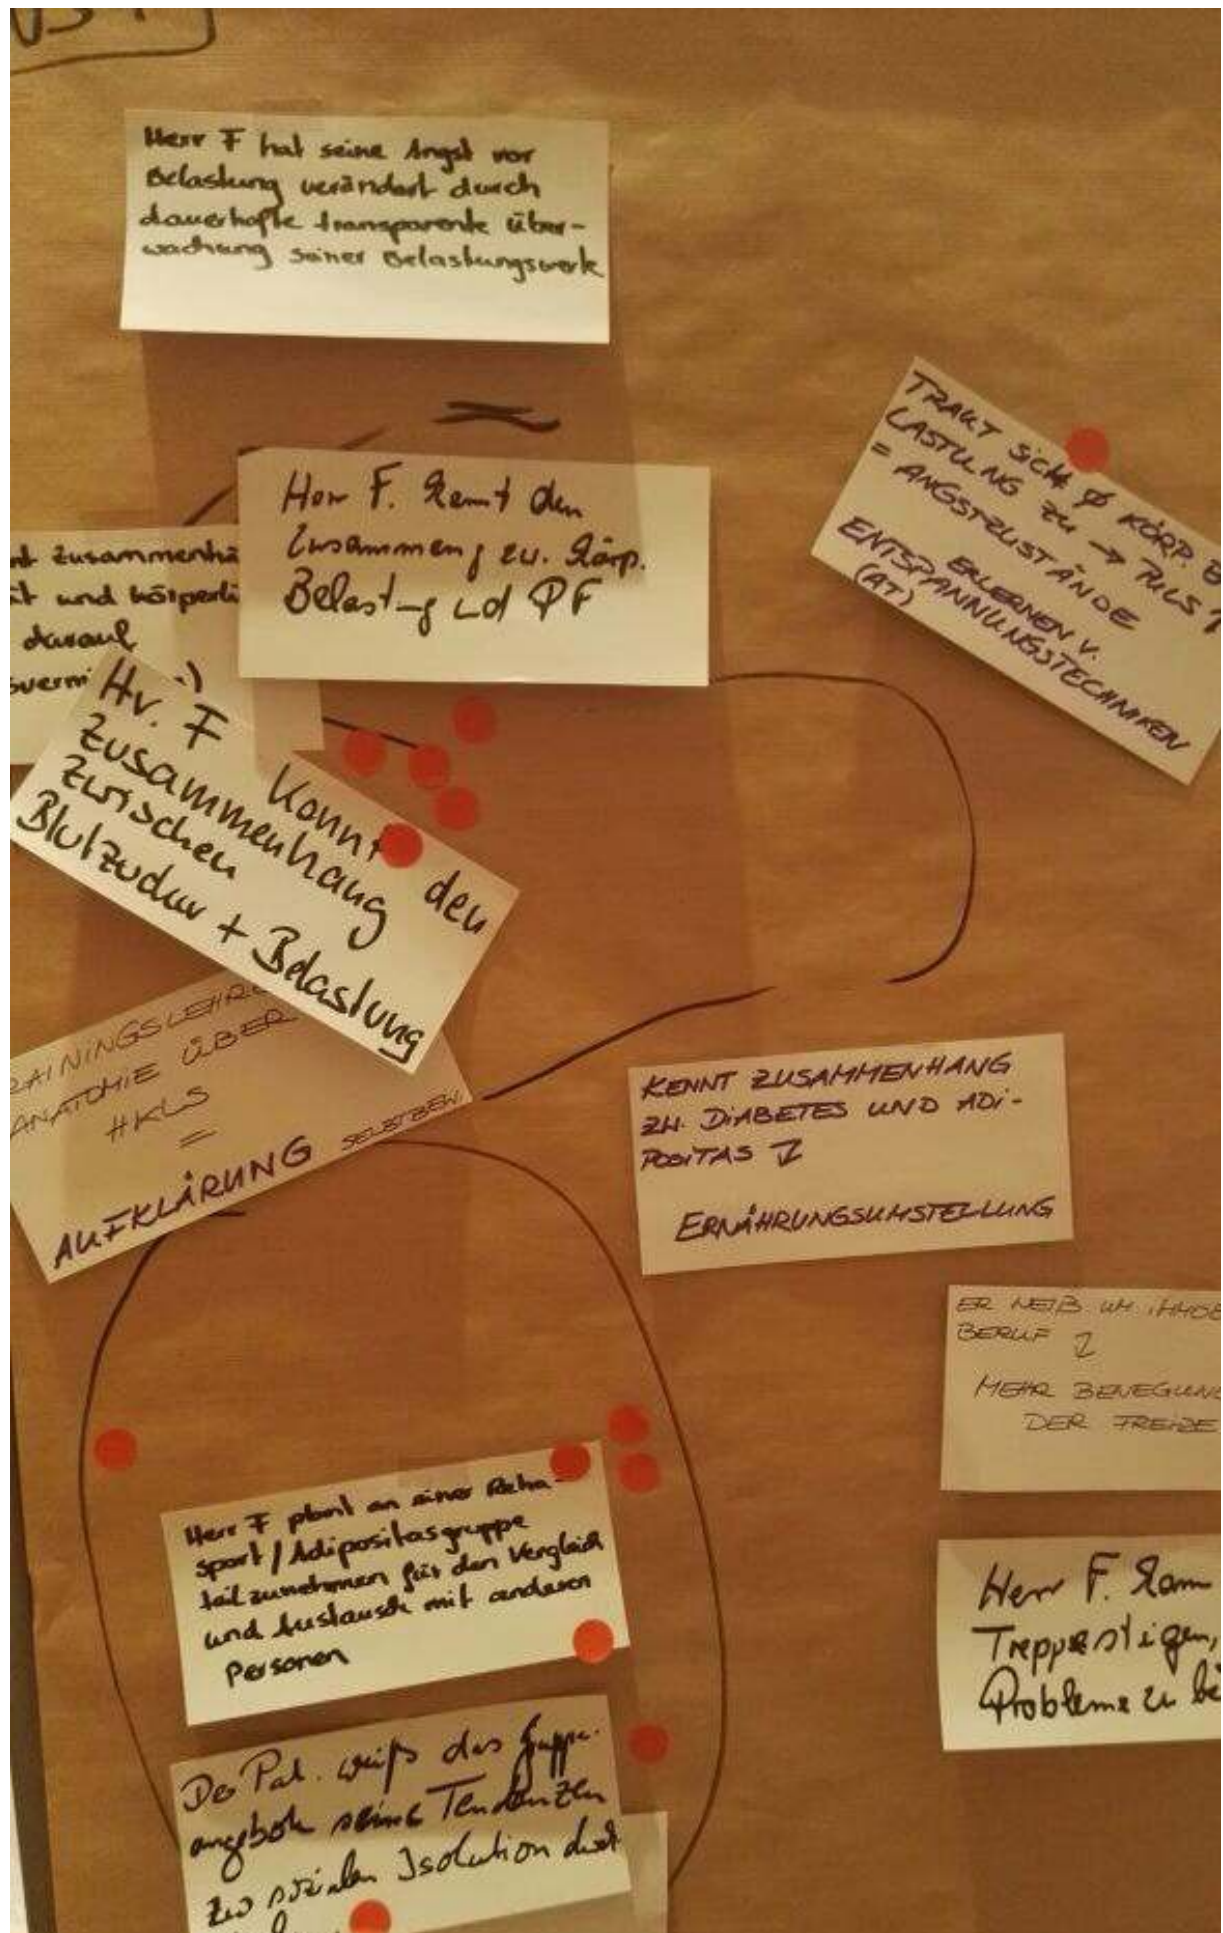 Herr F hat seine Angst vor
Belastung verändert durch
dauerhafte transparente Über-
wachung seiner Belastungswerte
TRAUT SICH Ø KÖRP. BE
LASTUNG ZU → PULS ↑
= ANGSTZUSTÄNDE
ERLERNEN V.
ENTSPANNUNGSTECHNIKEN
(AT)
Herr F. kennt den
Zusammen zw. körp.
Belastung und PF
nt Zusammenhä
ät und körperli
darauf
svermi
Hr. F kennt den
Zusammenhang
zwischen
Blutzucker + Belastung
RAININGSLEHRE
ANATOMIE ÜBER
HKLS
=
AUFKLÄRUNG SELBSTBEW.
KENNT ZUSAMMENHANG
ZW. DIABETES UND ADI-
POSITAS ↓
ERNÄHRUNGSUMSTELLUNG
ER WEIß UM IMMOB
BERUF ↓
MEHR BEWEGUNG
DER FREIZE
Herr F plant an einer Reha-
sport / Adipositasgruppe
teilzunehmen für den Vergleich
und Austausch mit anderen
Personen
Herr F. kann
Treppesteigen,
Probleme zu be
Der Pat. weiß das Gruppe-
angebote seine Tendenzen
zur sozialen Isolation durch